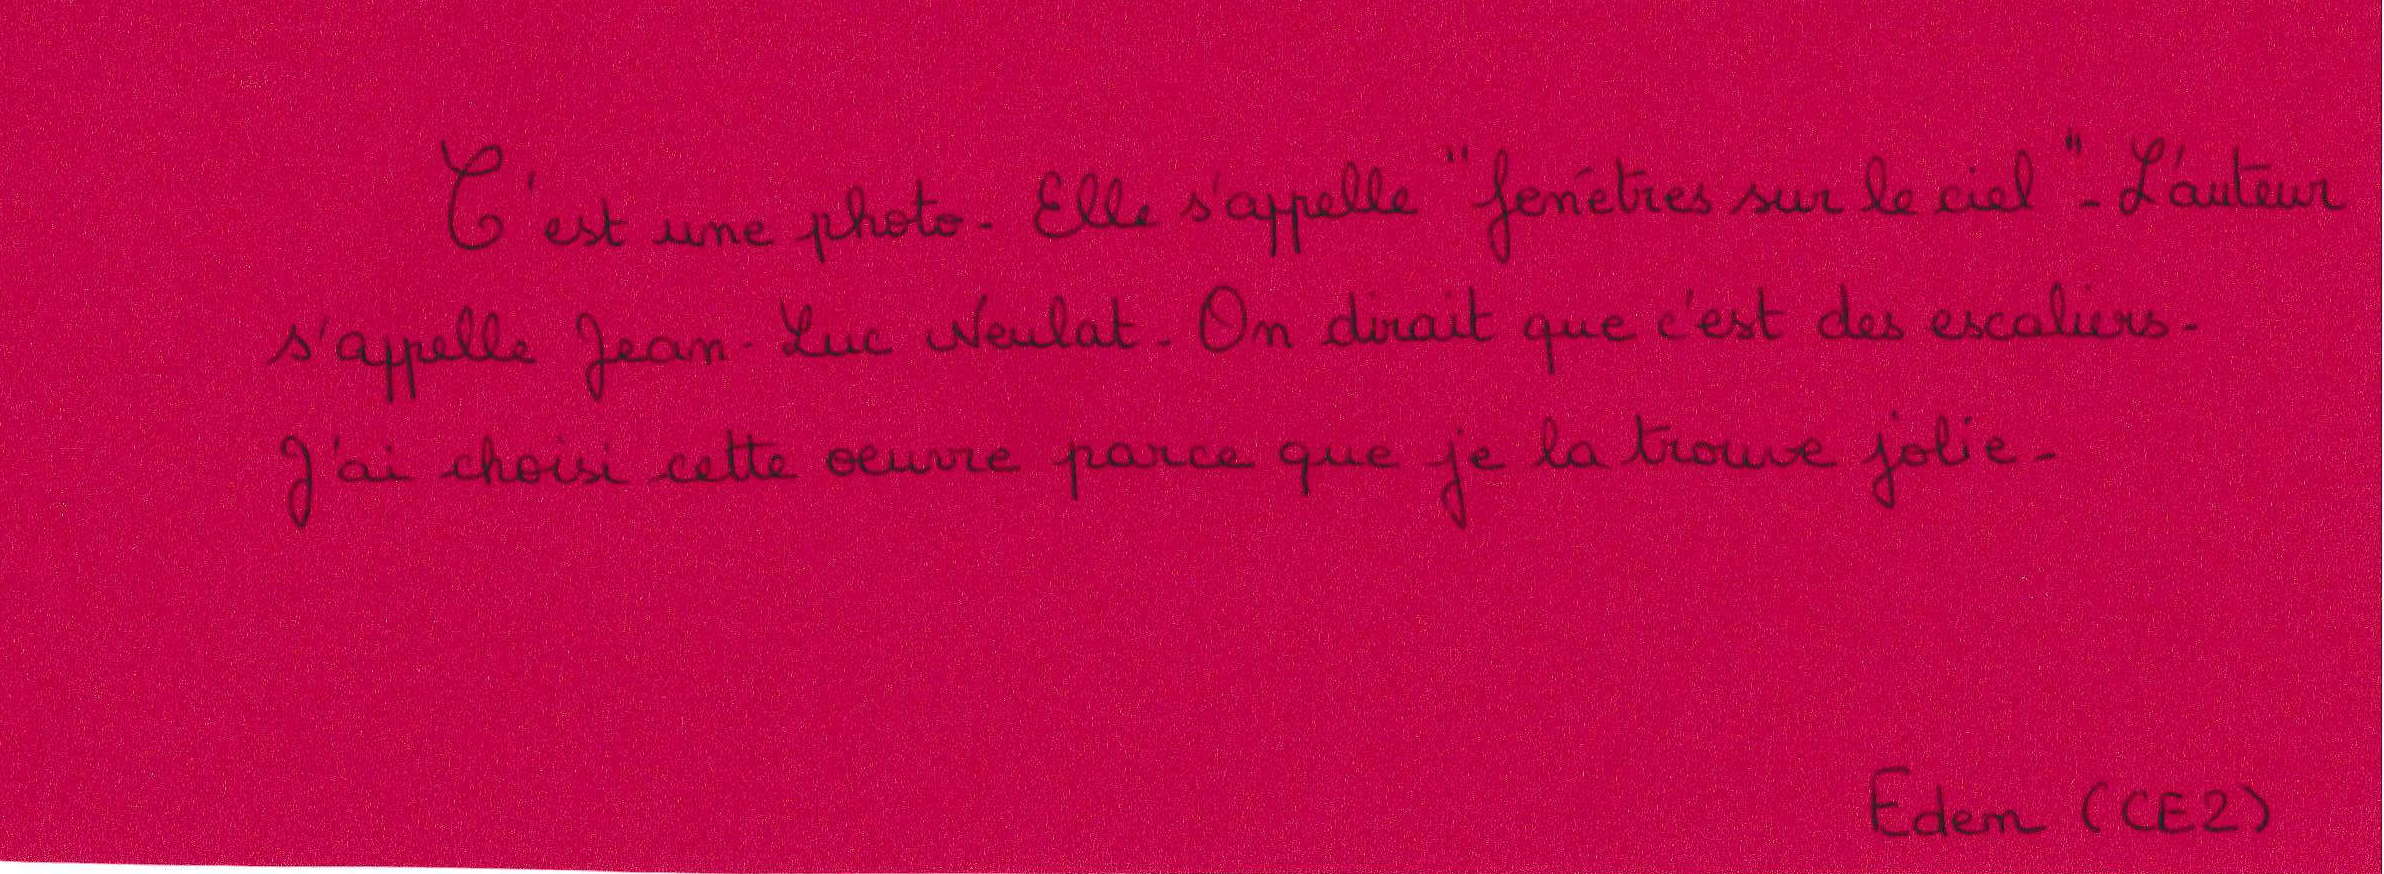 C'est une photo. Elle s'appelle "fenêtres sur le ciel". L'auteur
s'appelle Jean-Luc Neulat. On dirait que c'est des escaliers.
J'ai choisi cette oeuvre parce que je la trouve jolie.
Eden (CE2)